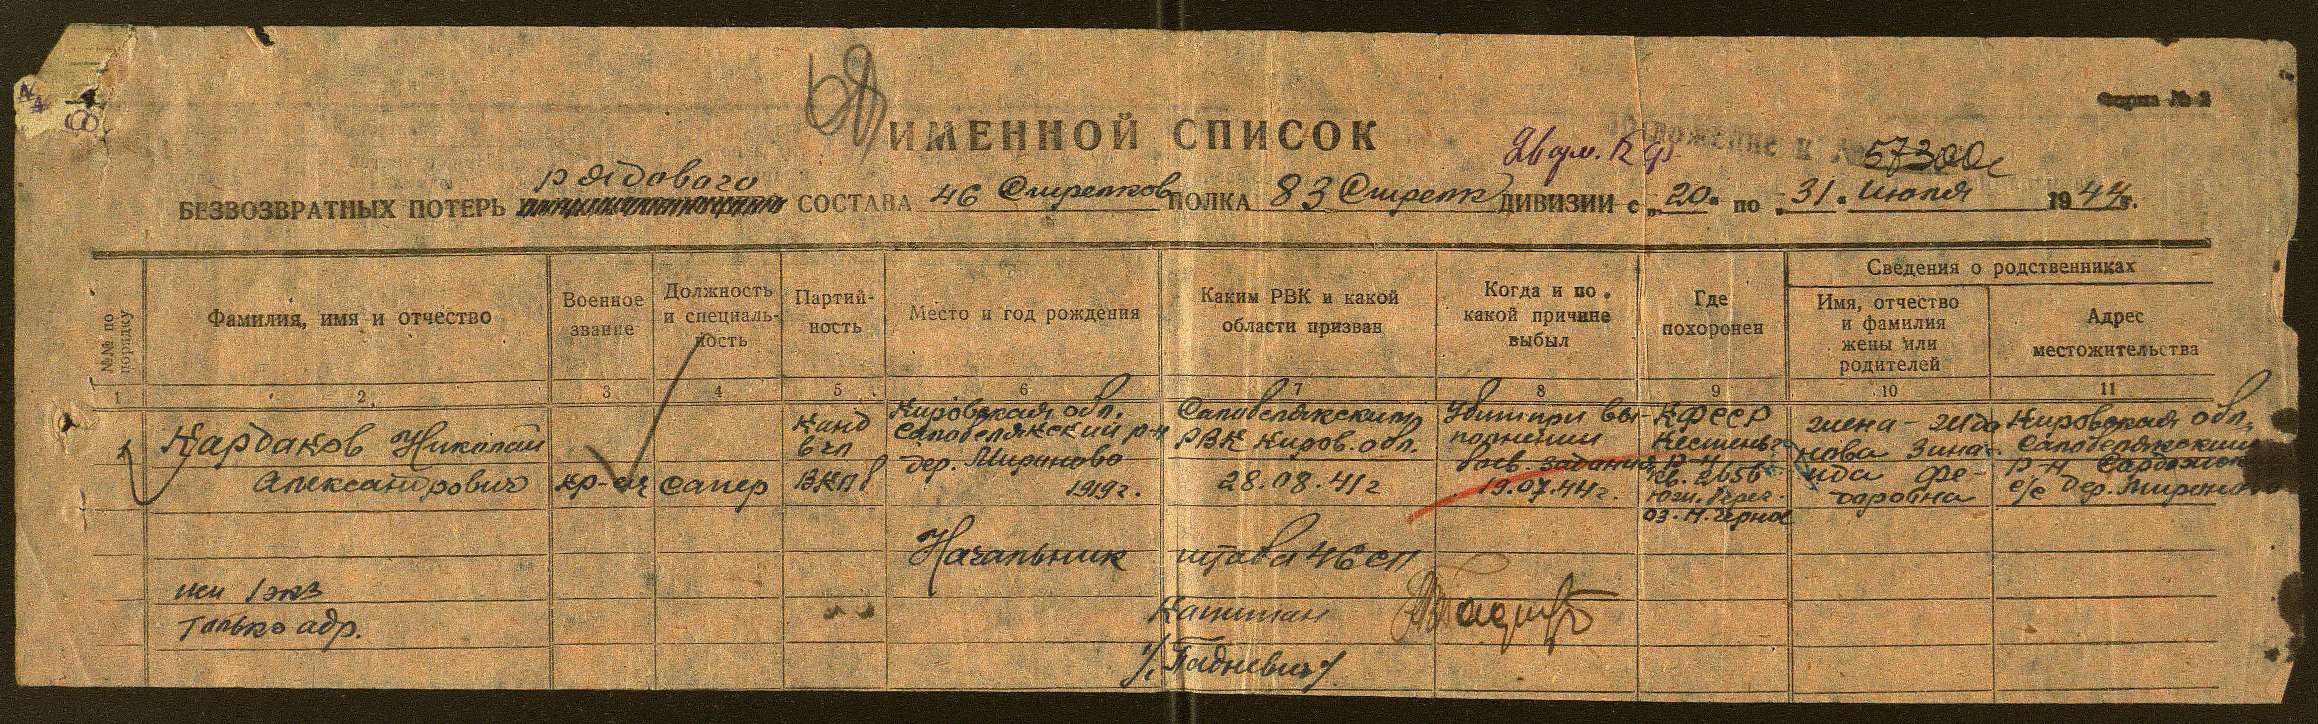 Форма № 2
ИМЕННОЙ СПИСОК
57300с
рядового
БЕЗВОЗВРАТНЫХ ПОТЕРЬ СОСТАВА 46 Стрелков ПОЛКА 83 Стрелк ДИВИЗИИ с „20" по „31" июля 1944 г.
№№ по порядку
Фамилия, имя и отчество
Военное звание
Должность и специаль-
ность
Партий-
ность
Место и год рождения
Каким РВК и какой
области призван
Когда и по
какой причине
выбыл
Где
похоронен
Сведения о родственниках
Имя, отчество
и фамилия
жены или
родителей
Адрес
местожительства
1 2 3 4 5 6 7 8 9 10 11
1
Кардаков Николай
Александрович
кр-ец
сапер
Канд
в чл
ВКПб
Кировская обл.
Саповелякский р-н
дер. Мироново
1919 г.
Саповелякским
РВК Киров. обл.
28.08.41 г
Убит при вы-
полнении
боев. задания
19.07.44 г.
КФССР
Кестеньг.
р-н
кв. 2656
южн. берег.
оз. Н. Черное
жена -
нова Зина-
ида Фе-
доровна
Кировская обл,
Саповелякский
р-н
с/с дер. Мироново
Начальник штаба 46 сп
Капитан
/ Гадневич /
1 экз
только адр.